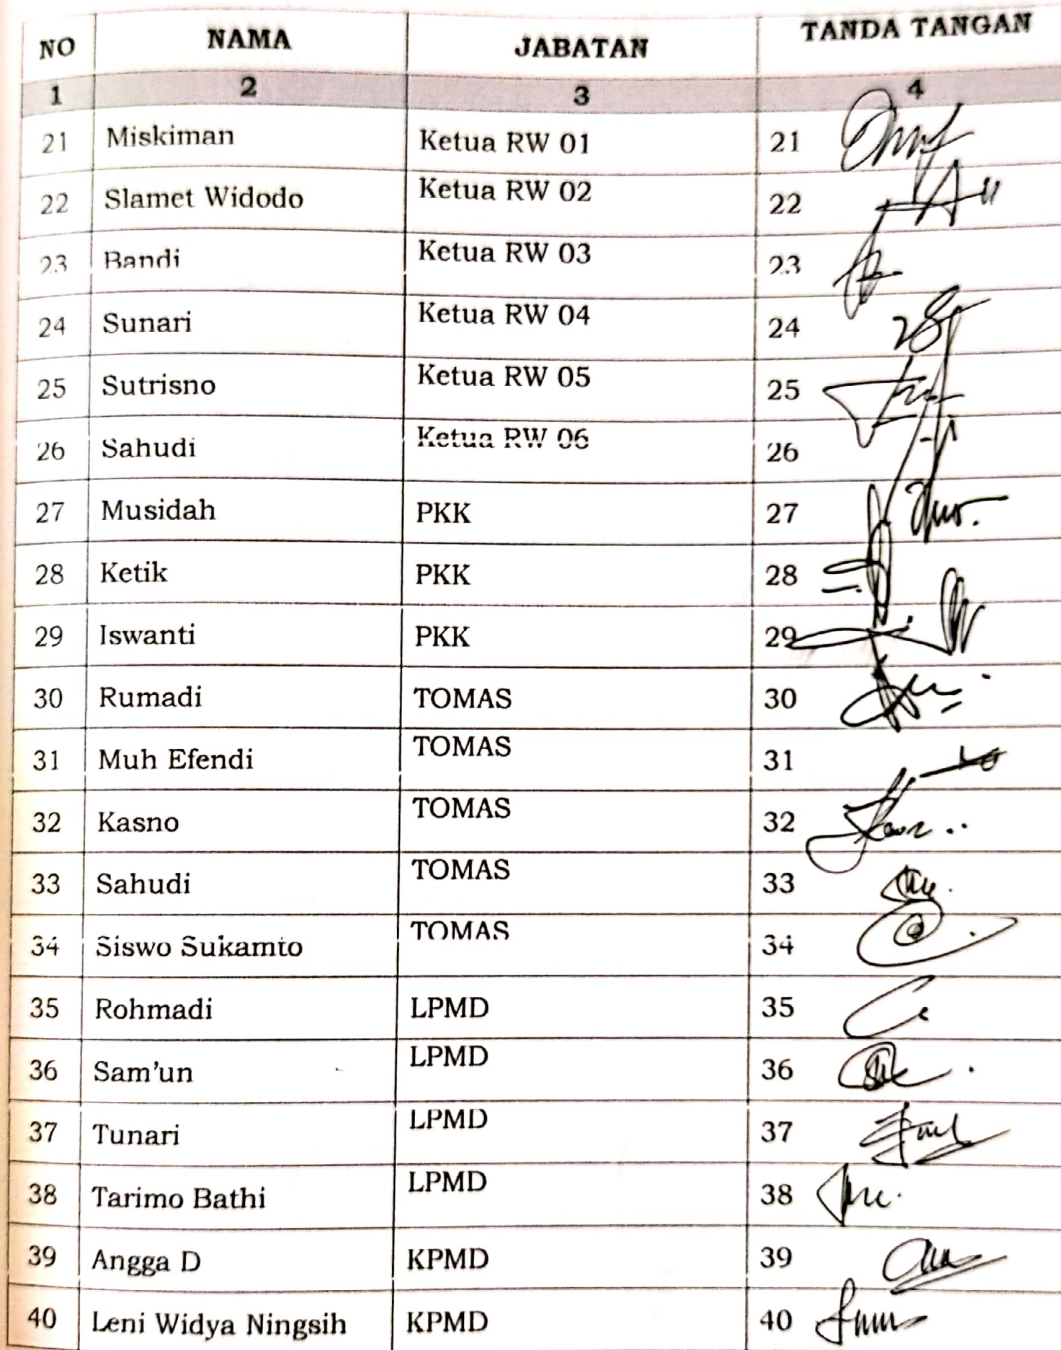 NO NAMA JABATAN TANDA TANGAN
1 2 3 4
21 Miskiman Ketua RW 01 21
22 Slamet Widodo Ketua RW 02 22
23 Bandi Ketua RW 03 23
24 Sunari Ketua RW 04 24
25 Sutrisno Ketua RW 05 25
26 Sahudi Ketua RW 06 26
27 Musidah PKK 27
28 Ketik PKK 28
29 Iswanti PKK 29
30 Rumadi TOMAS 30
31 Muh Efendi TOMAS 31
32 Kasno TOMAS 32
33 Sahudi TOMAS 33
34 Siswo Sukamto TOMAS 34
35 Rohmadi LPMD 35
36 Sam'un LPMD 36
37 Tunari LPMD 37
38 Tarimo Bathi LPMD 38
39 Angga D KPMD 39
40 Leni Widya Ningsih KPMD 40